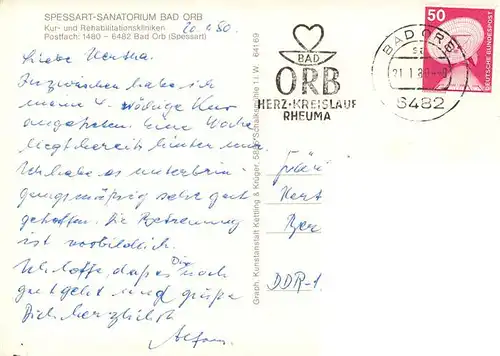 SPESSART-SANATORIUM BAD ORB
Kur- und Rehabilitationskliniken
Postfach: 1480 – 6482 Bad Orb (Spessart)
Liebe Hertha.
Inzwischen habe ich
meine 4-wöchige Kur
angetreten. Eine Woche
liegt bereits hinter mir.
Ich habe es unterbrin-
gungsmäßig sehr gut
getroffen. Die Betreuung
ist vorbildlich.
Ich hoffe, daß es Dir noch
gut geht und grüße
Dich herzlichst
Alfons.
Graph. Kunstanstalt Kettling & Krüger, 5885 Schalksmühle 1 i. W. 64169
BAD
ORB
HERZ·KREISLAUF
RHEUMA
BAD ORB
6482
50
DEUTSCHE BUNDESPOST
DDR-1